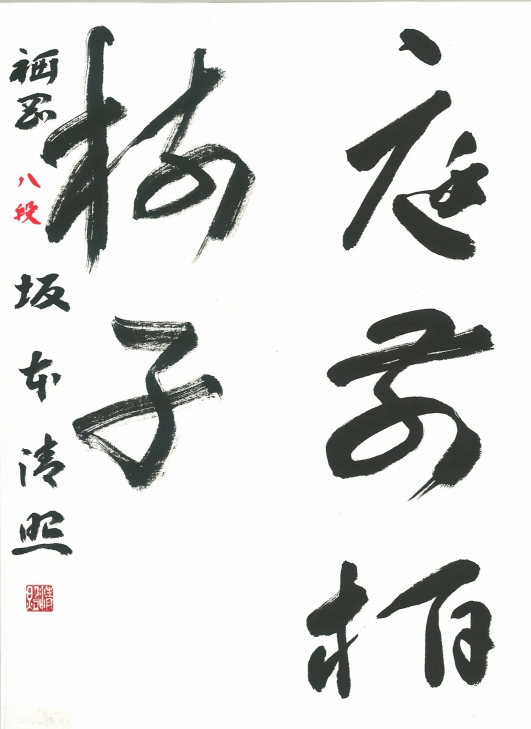 庭前柏
樹子
福岡 八段 坂本清照
清照